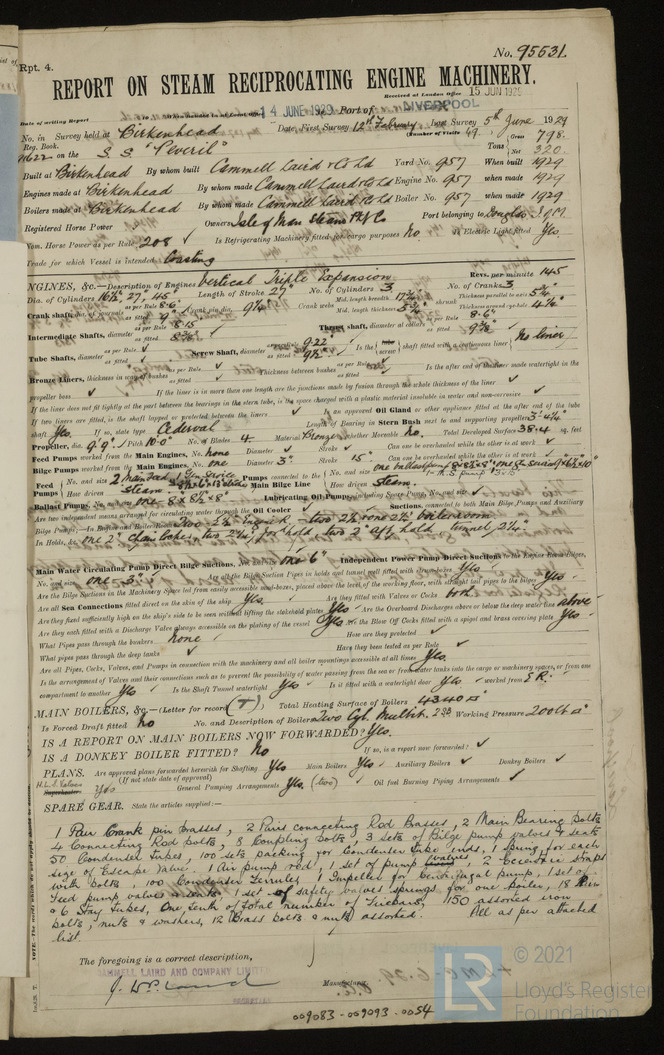 No. 95531.
Rpt. 4.
REPORT ON STEAM RECIPROCATING ENGINE MACHINERY.
Received at London Office 15 JUN 1929
Date of writing Report 14 JUNE 1929 Port of LIVERPOOL
No. in Survey held at Birkenhead Date, First Survey 12th February Last Survey 5th June 1929
Reg. Book. (Number of Visits 49.
on the S.S. "Peveril" Tons Gross 798. Net 320.
Built at Birkenhead By whom built Cammell Laird & Co Ld Yard No. 957 When built 1929
Engines made at Birkenhead By whom made Cammell Laird & Co Ld Engine No. 957 when made 1929
Boilers made at Birkenhead By whom made Cammell Laird & Co Ld Boiler No. 957 when made 1929
Registered Horse Power Owners Isle of Man Steam Pkt Co Port belonging to Douglas I.O.M.
Nom. Horse Power as per Rule 208 Is Refrigerating Machinery fitted for cargo purposes No Is Electric Light fitted Yes
Trade for which Vessel is intended Coasting
ENGINES, &c.—Description of Engines Vertical Triple Expansion Revs. per minute 145
Dia. of Cylinders 16½" 27" 45" Length of Stroke 27" No. of Cylinders 3 No. of Cranks 3
Crank shaft, dia. of journals as per Rule 8·6" as fitted 9" Crank pin dia. 9¼" Crank webs Mid. length breadth 17¾" Mid. length thickness 5¾" shrunk Thickness parallel to axis 5¾" Thickness around eye-hole 4⅛"
Intermediate Shafts, diameter as per Rule 8·15 as fitted 8⅝" Thrust shaft, diameter at collars as per Rule 8·6" as fitted 9⅛"
Tube Shafts, diameter as per Rule as fitted Screw Shaft, diameter as per Rule 9·22 as fitted 9½" Is the tube screw shaft fitted with a continuous liner No liner
Bronze Liners, thickness in way of bushes as per Rule as fitted Thickness between bushes as per Rule as fitted Is the after end of the liner made watertight in the
propeller boss If the liner is in more than one length are the joints made by fusion through the whole thickness of the liner
If the liner does not fit tightly at the part between the bearings in the stern tube, is the space charged with a plastic material insoluble in water and non-corrosive
If two liners are fitted, is the shaft lapped or protected between the liners Is an approved Oil Gland or other appliance fitted at the after end of the tube
shaft Yes If so, state type Cederval Length of Bearing in Stern Bush next to and supporting propeller 3'-4¼"
Propeller, dia. 9'9" Pitch 10·0" No. of Blades 4 Material Bronze whether Moveable No. Total Developed Surface 38·4 sq. feet
Feed Pumps worked from the Main Engines, No. none Diameter Stroke Can one be overhauled while the other is at work
Bilge Pumps worked from the Main Engines, No. one Diameter 3" Stroke 15" Can one be overhauled while the other is at work
Feed Pumps No. and size 2 Main Feed Pumps connected to the Main Bilge Line No. and size one ballast pump 8 x 8½ x 8" one G. service
How driven Steam How driven Steam.
Ballast Pumps, No. and size one 8 x 8½ x 8" Lubricating Oil Pumps, including Spare Pump, No. and size
Are two independent means arranged for circulating water through the Oil Cooler Suctions, connected to both Main Bilge Pumps and Auxiliary
Bilge Pumps;—In Engine and Boiler Room two 2½" Engine R. two 2½" & one 2½" boiler room
In Holds, &c. one 2" chain locker, two 2¼" for'd hold two 2" aft hold tunnel 2½"
Main Water Circulating Pump Direct Bilge Suctions, No. and size one 6" Independent Power Pump Direct Suctions to the Engine Room Bilges,
No. and size one 3½" Are all the Bilge Suction Pipes in holds and tunnel well fitted with strum-boxes Yes
Are the Bilge Suctions in the Machinery Space led from easily accessible mud-boxes, placed above the level of the working floor, with straight tail pipes to the bilges Yes
Are all Sea Connections fitted direct on the skin of the ship Yes. Are they fitted with Valves or Cocks both
Are they fixed sufficiently high on the ship's side to be seen without lifting the stokehold plates Yes Are the Overboard Discharges above or below the deep water line above
Are they each fitted with a Discharge Valve always accessible on the plating of the vessel Yes Are the Blow Off Cocks fitted with a spigot and brass covering plate Yes
What Pipes pass through the bunkers none How are they protected
What pipes pass through the deep tanks Have they been tested as per Rule
Are all Pipes, Cocks, Valves, and Pumps in connection with the machinery and all boiler mountings accessible at all times Yes.
Is the arrangement of Valves and their connections such as to prevent the possibility of water passing from the sea or from water tanks into the cargo or machinery spaces, or from one
compartment to another Yes Is the Shaft Tunnel watertight Yes Is it fitted with a watertight door Yes worked from E.R.
MAIN BOILERS, &c.—(Letter for record (T)) Total Heating Surface of Boilers 4340 □'
Is Forced Draft fitted No No. and Description of Boilers Two Cyl. Multit. Working Pressure 200 lb □"
IS A REPORT ON MAIN BOILERS NOW FORWARDED? Yes.
IS A DONKEY BOILER FITTED? No If so, is a report now forwarded?
PLANS. Are approved plans forwarded herewith for Shafting Yes Main Boilers Yes Auxiliary Boilers Donkey Boilers
(If not state date of approval)
Superheaters Yes General Pumping Arrangements Yes. (two) Oil fuel Burning Piping Arrangements
SPARE GEAR. State the articles supplied:—
1 Pair Crank pin brasses, 2 Pairs connecting Rod Brasses, 2 Main Bearing bolts
4 Connecting Rod bolts, 8 Coupling bolts, 3 sets of Bilge pump valves & seats
50 Condenser tubes, 100 sets packing for condenser tube ends, 1 spring for each
size of Escape Valve. 1 Air pump rod, 1 set of pump valves, 2 Eccentric straps
with bolts, 100 Condenser Ferrules, 1 Impeller for centrifugal pump, 1 set of
feed pump valves & seats, 1 set of safety valves springs for one boiler, 18 Plain
& 6 Stay Tubes, One tenth of total number of Firebars, 150 assorted iron
bolts, nuts & washers, 12 Brass bolts & nuts assorted. All as per attached
list.
The foregoing is a correct description,
CAMMELL LAIRD AND COMPANY LIMITED
Manufacturer.
SECRETARY
009083-009093-0054
© 2021
Lloyd's Register
Foundation
LR